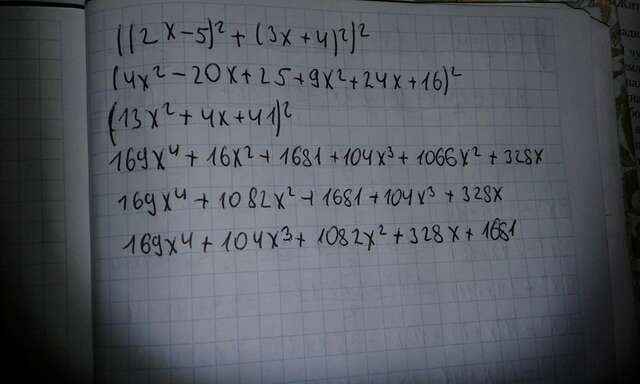 ((2x-5)²+(3x+4)²)²
(4x²-20x+25+9x²+24x+16)²
(13x²+4x+41)²
169x⁴+16x²+1681+104x³+1066x²+328x
169x⁴+1082x²+1681+104x³+328x
169x⁴+104x³+1082x²+328x+1681